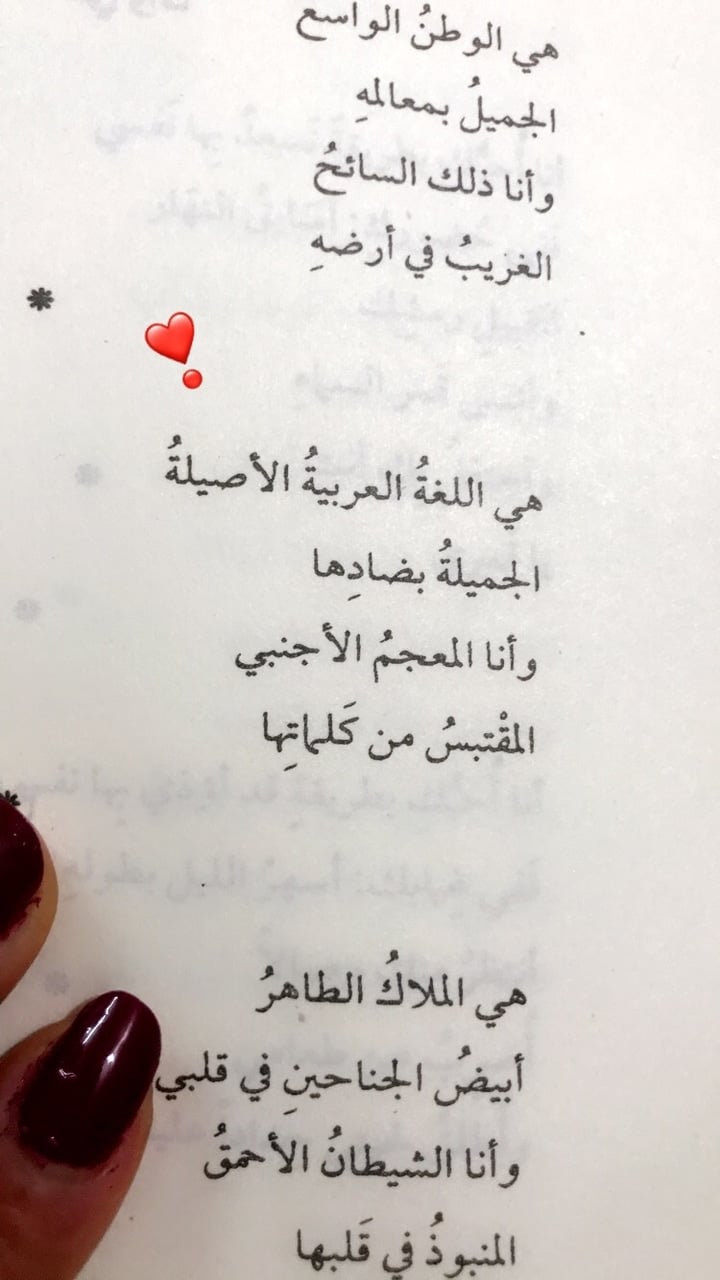 هي الوطنُ الواسع
الجميلُ بمعالمهِ
وأنا ذلك السائحُ
الغريبُ في أرضهِ
هي اللغةُ العربيةُ الأصيلةُ
الجميلةُ بضادِها
وأنا المعجمُ الأجنبي
المقْتبسُ من كَلماتِها
هي الملاكُ الطاهرُ
أبيضُ الجناحينِ في قلبي
وأنا الشيطانُ الأحمقُ
المنبوذُ في قَلبها